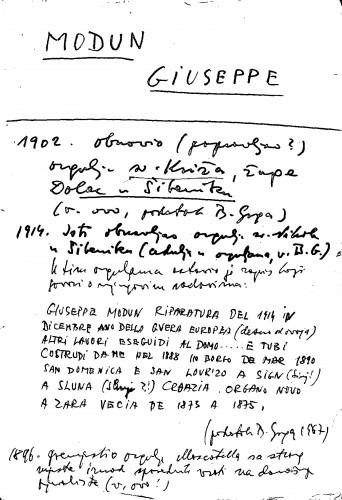 MODUN
GIUSEPPE
1902. obnovio (popravljao?)
orgulje sv. Križa, župe
Dolac u Šibeniku
(v. ovo, podatak B. Grga)
1914. Isti obnavljao orgulje sv. Nikole
u Šibeniku (v. B. G.) =
k tim orguljama ostavio je zapis koji
govori o njegovim radovima:
GIUSEPPE MODUN RIPARATURA DEL 1914 IN
DICEMBRE ANO DELLO GVERA EUROPEA
ALTRI LAVORI ESEGUIDI AL DOMO.....E TUBI
COSTRUDI DA ME NEL 1888 IN BORGO DE MAR 1890
SAN DOMENICA E SAN LOURIZO A SIGN (Sinj!)
A SLUNA (Slunj?!) CROAZIA. ORGANO NOVO
A ZARA VECIA DE 1873 A 1875,
(podatak B. Grga 1987)
1896. premjestio orgulje Moscatella sa starog
mjesta iznad sporednih vrata na današnje
(v. ovo!)